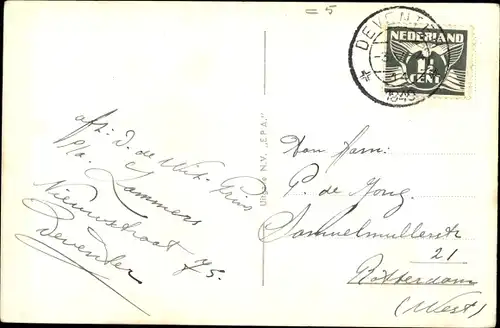 = 5
DEVENTER
1940
NEDERLAND
1½
CENT
afz: D. de Wit-Prins
p/a. Lammers
Nieuwstraat 75.
Deventer
Uitgave N.V. „E.P.A."
Den Heer:
P. de Jong.
Samuelmullerstr
21
Rotterdam
(West)